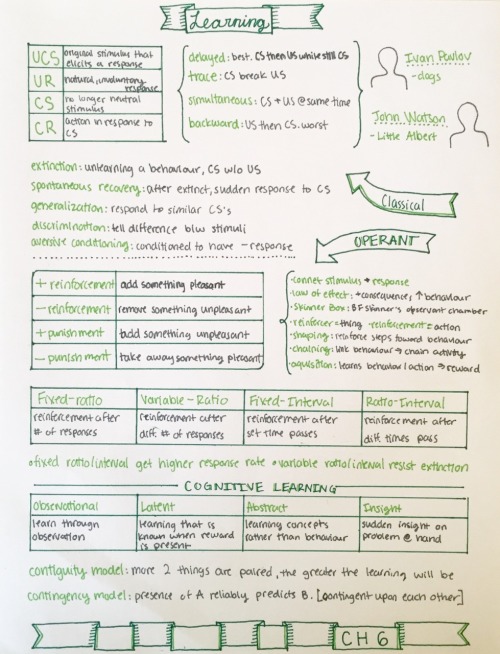 Learning
UCS original stimulus that
elicits a response
UR natural, involuntary
response
CS no longer neutral
stimulus
CR action in response to
CS
delayed: best. CS then US while still CS
trace: CS break US
simultaneous: CS + US @ same time
backward: US then CS. worst
Ivan Pavlov
- dogs
John Watson
- Little Albert
extinction: unlearning a behaviour, CS w/o US
spontaneous recovery: after extinct, sudden response to CS
generalization: respond to similar CS's
discrimination: tell difference b/w stimuli
aversive conditioning: conditioned to have - response
Classical
OPERANT
+ reinforcement add something pleasant
- reinforcement remove something unpleasant
+ punishment add something unpleasant
- punishment take away something pleasant
-connet stimulus → response
-law of effect: + consequences, ↑ behaviour
-Skinner Box: BF Skinner's observant chamber
-reinforcer = thing -reinforcement = action
-shaping: reinforce steps toward behaviour
-chaining: link behaviour → chain activity
-aquisition: learns behaviour/action → reward
Fixed-ratio Variable-Ratio Fixed-Interval Ratio-Interval
reinforcement after reinforcement after reinforcement after reinforcement after
# of responses diff. # of responses set time passes diff. times pass
•fixed ratio/interval get higher response rate •variable ratio/interval resist extinction
COGNITIVE LEARNING
Observational Latent Abstract Insight
learn through learning that is learning concepts sudden insight on
observation known when reward rather than behaviour problem @ hand
is present
contiguity model: more 2 things are paired, the greater the learning will be
contingency model: presence of A reliably predicts B. [contingent upon each other]
CH 6